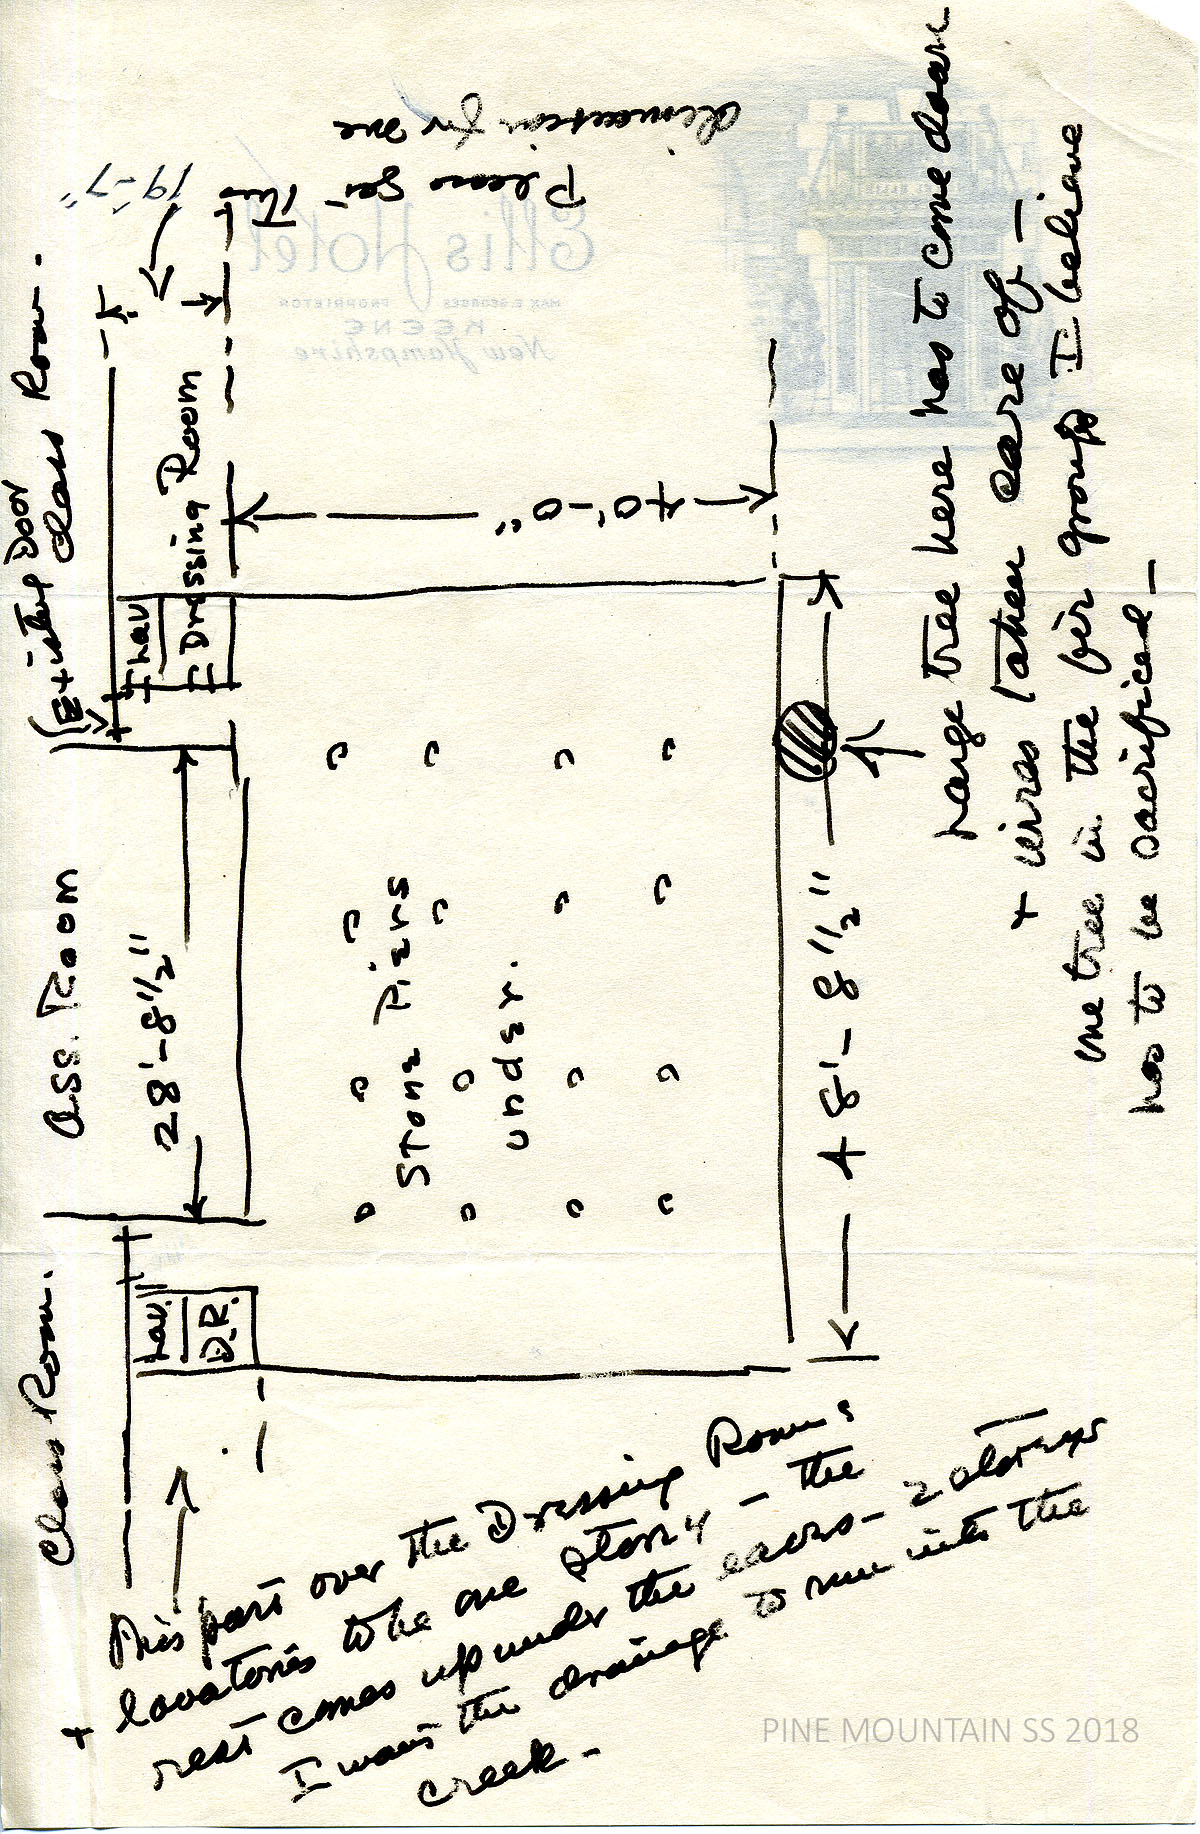 Class Room.
Ass. Room
(Existing Door
Class Room.
28'-8½"
Lav.
D.R.
Lav
Dressing Room
19'-7"
Please get this
dimension for me
40'-0"
Stone Piers
under.
48'-8½"
Large tree here has to come down
+ wires taken care of —
one tree in the fir group I believe
has to be sacrificed —
This part over the Dressing Rooms
+ lavatories to be one story — the
rest comes up under the eaves — 2 storeys
I want the drainage to run into the
creek —
Ellis Hotel
MAX E. GEORGES PROPRIETOR
KEENE
New Hampshire
PINE MOUNTAIN SS 2018